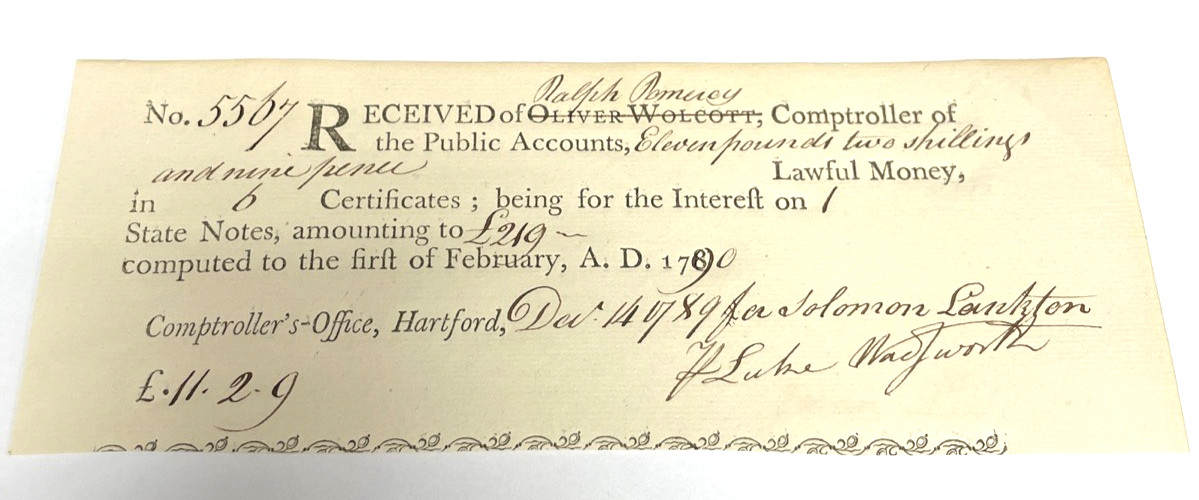 Ralph Pomeroy
No. 5567 RECEIVED of OLIVER WOLCOTT, Comptroller of
the Public Accounts, Eleven pounds two shillings
and nine pence Lawful Money,
in 6 Certificates ; being for the Intereſt on 1
State Notes, amounting to £219 ~
computed to the firſt of February, A. D. 1790
Comptroller's-Office, Hartford, Decr. 14 1789 for Solomon Lankton
Luke Wadsworth
£. 11. 2. 9